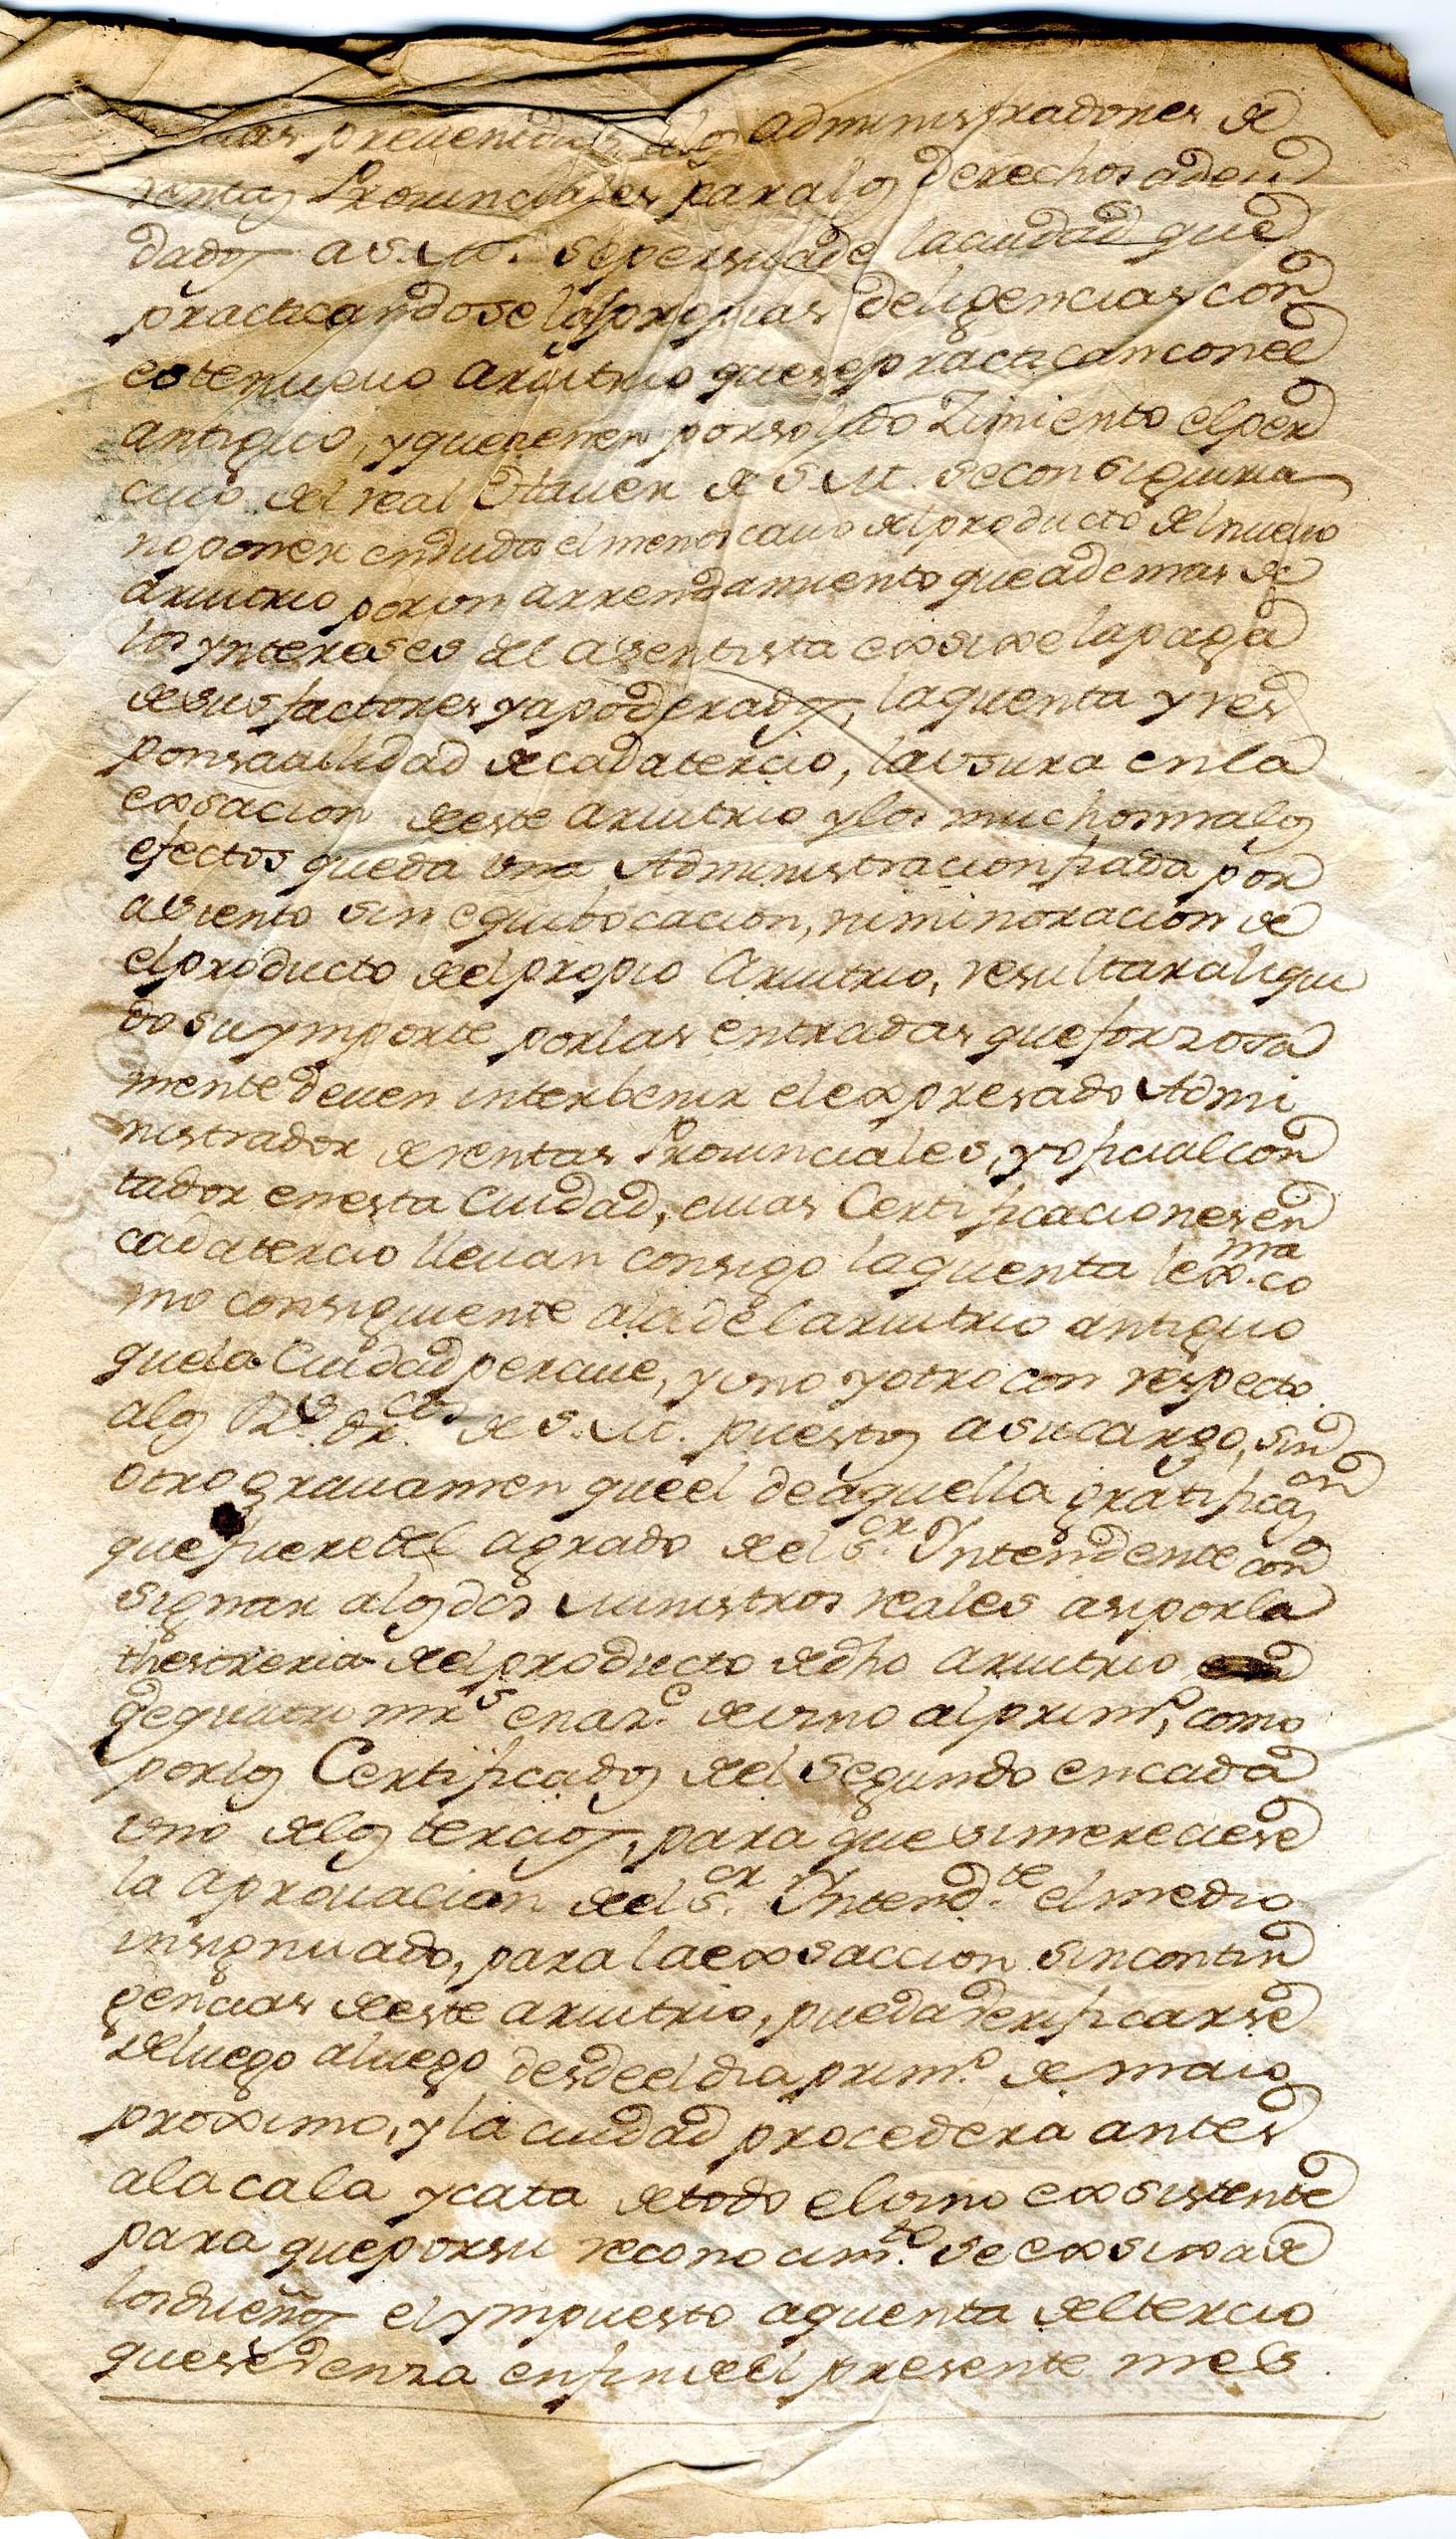 prevenidas a los administradores de
rentas Provinciales para los derechos adeu
dados a S.M. se persuade la ciudad que
practicandose las propias deligencias con
este nuevo arvitrio que se practican con el
antiguo, y que tienen por solido Zimiento el per
ciuo del real Hauer de S.M. se conseguira
no poner en duda el menoscauo del producto del nuevo
arvitrio por un arrendamiento que ademas de
los yntereses del asentista exsixe la paga
de sus factores y apoderados, la quenta y res
ponsauilidad de cada tercio, la usura en la
exsacion de este arvitrio y los muchos malos
efectos que da una Administracion fiada por
asiento sin equibocacion, ni minoracion de
el producto del propio Arvitrio, resultara liqui
do su ymporte por las entradas que forzosa
mente deuen interbenir el expresado Admi
nistrador de rentas Provinciales, y oficial con
tador en esta Ciudad, cuias Certificaciones en
cada tercio lleuan consigo la quenta lexma. co
mo consiguiente a la del arvitrio antiguo
que la Ciudad perciue, y uno y otro con respecto
a los Rs. drcos. de S.M. puestos a su cargo, sin
otro grauamen que el de aquella gratificaon
que fuere del agrado del Sor. Yntendente con
signar a los dos Ministros reales asi por la
thesoreria del producto de dho arvitrio
de quatro mrs en are. de vino al primo, como
por los Certificados del Segundo en cada
uno de los tercios, para que si mereciese
la aprouacion del Sor. Yntendte. el medio
insignuado, para la exsaccion sin contin
gencias de este arvitrio, pueda verificarse
de luego a luego desde el dia primo. de maio
proximo, y la ciudad procedera antes
a la cala y cata de todo el vino exsistente
para que por su reconocimto. se exsixa de
los dueños el ympuesto a quenta del tercio
que se denza en fin del presente mes